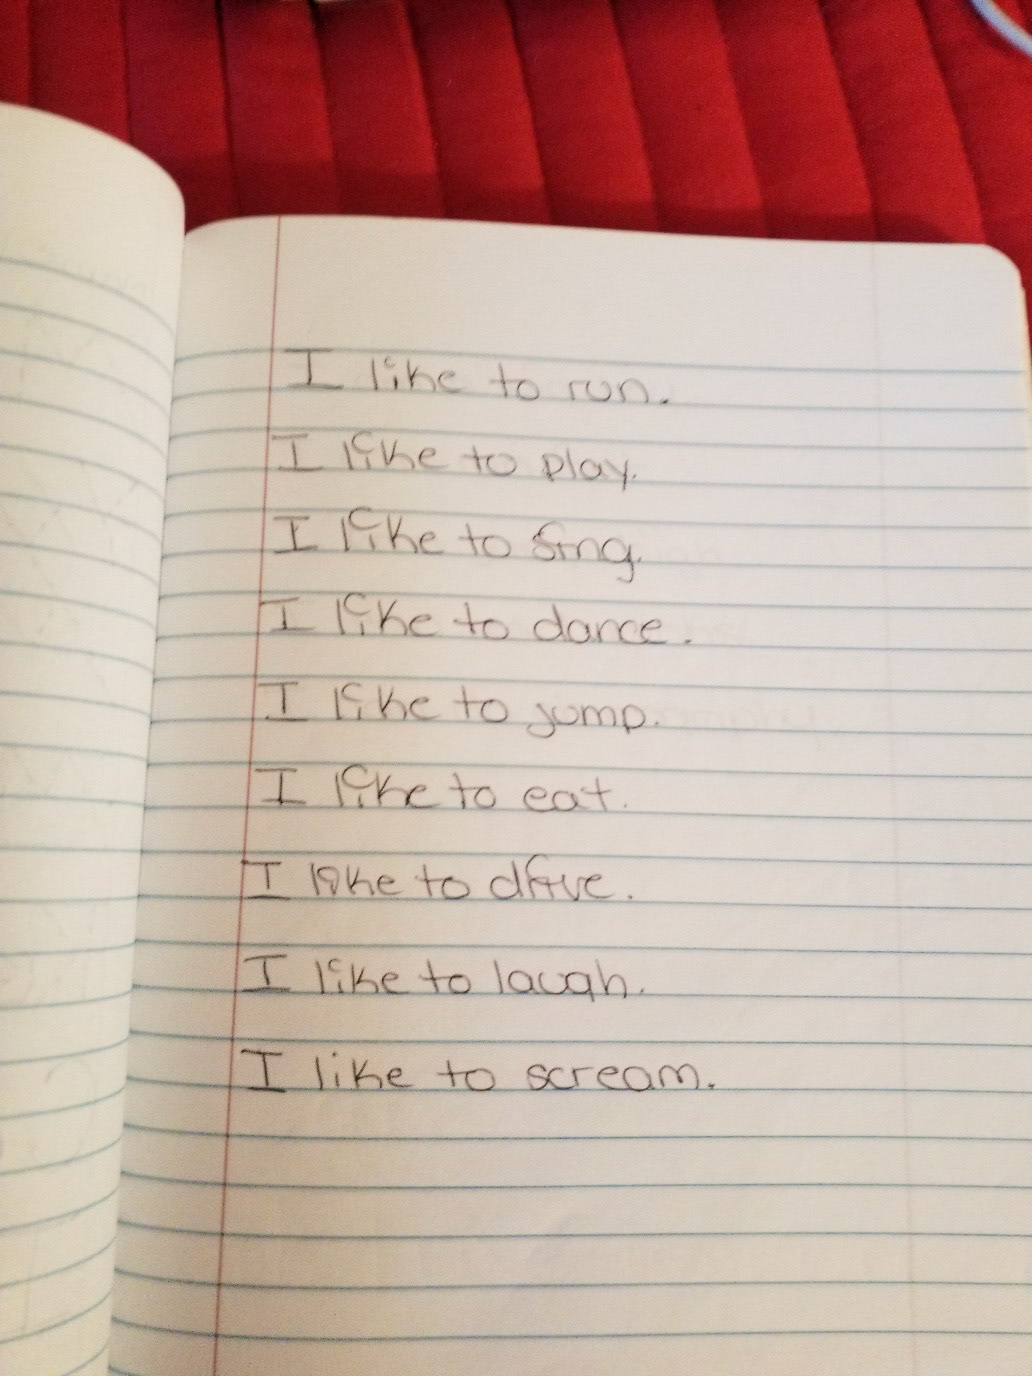 I like to run.
I like to play.
I like to sing.
I like to dance.
I like to jump.
I like to eat.
I like to drive.
I like to laugh.
I like to scream.